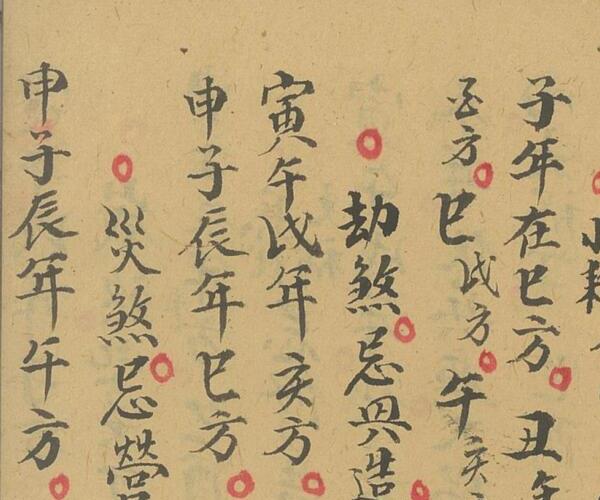 小耗
子年在巳方 丑年
方 巳戌方 午亥
劫煞忌興造
寅午戌年亥方
申子辰年巳方
災煞忌營
申子辰年午方